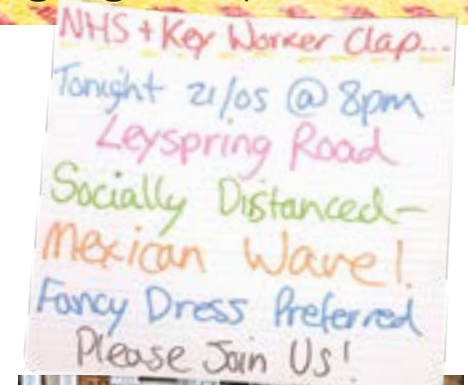 NHS + Key Worker Clap...
Tonight 21/05 @ 8pm
Leyspring Road
Socially Distanced-
Mexican Wave!
Fancy Dress Preferred
Please Join Us!